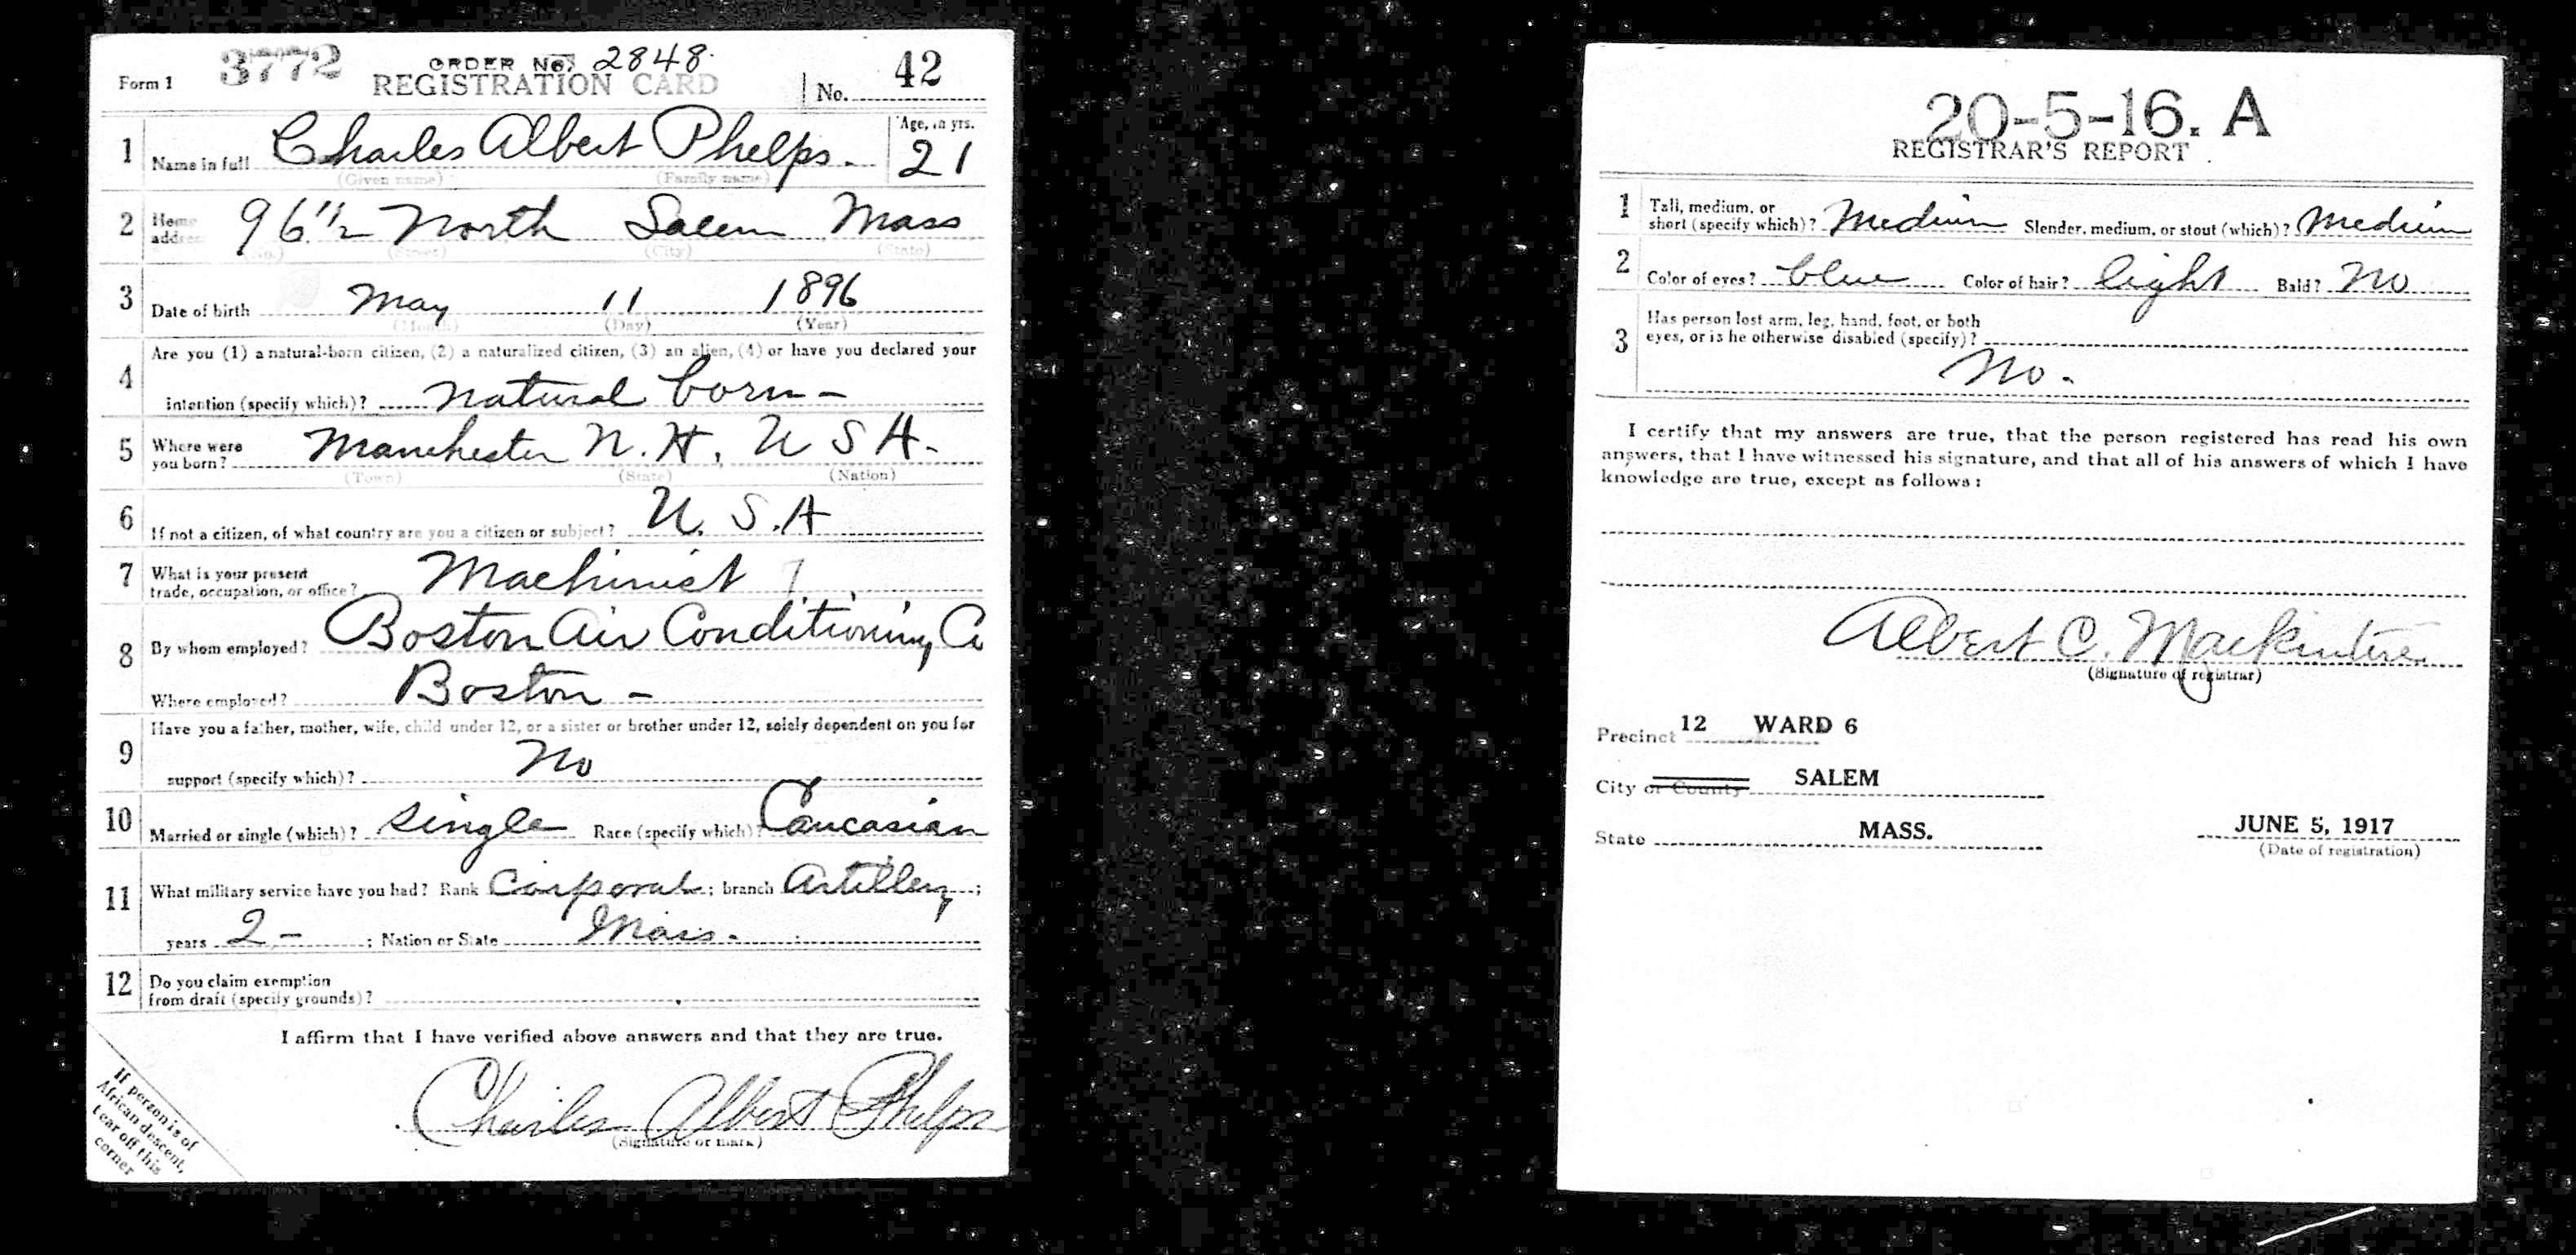 Form 1 3772 ORDER No. 2848.
REGISTRATION CARD No. 42
1 Name in full Charles Albert Phelps. Age, in yrs. 21
(Given name) (Family name)
2 Home address 96 1/2 North Salem Mass
(No.) (Street) (City) (State)
3 Date of birth May 11 1896
(Month) (Day) (Year)
4 Are you (1) a natural-born citizen, (2) a naturalized citizen, (3) an alien, (4) or have you declared your
intention (specify which)? natural born -
5 Where were you born? Manchester N.H. U S A-
(Town) (State) (Nation)
6 If not a citizen, of what country are you a citizen or subject? U. S. A
7 What is your present
trade, occupation, or office? Machinist
8 By whom employed? Boston Air Conditioning Co
Where employed? Boston -
9 Have you a father, mother, wife, child under 12, or a sister or brother under 12, solely dependent on you for
support (specify which)? No
10 Married or single (which)? single Race (specify which)? Caucasian
11 What military service have you had? Rank Corporal ; branch Artillery ;
years 2 - ; Nation or State Mass.
12 Do you claim exemption
from draft (specify grounds)?
I affirm that I have verified above answers and that they are true.
Charles Albert Phelps
(Signature or mark)
If person is of
African descent,
tear off this
corner
20-5-16. A
REGISTRAR'S REPORT
1 Tall, medium, or
short (specify which)? Medium Slender, medium, or stout (which)? Medium
2 Color of eyes? blue Color of hair? light Bald? No
3 Has person lost arm, leg, hand, foot, or both
eyes, or is he otherwise disabled (specify)?
No.
I certify that my answers are true, that the person registered has read his own
answers, that I have witnessed his signature, and that all of his answers of which I have
knowledge are true, except as follows:
Albert C. Mackintire
(Signature of registrar)
Precinct 12 WARD 6
City or County SALEM
State MASS. JUNE 5, 1917
(Date of registration)